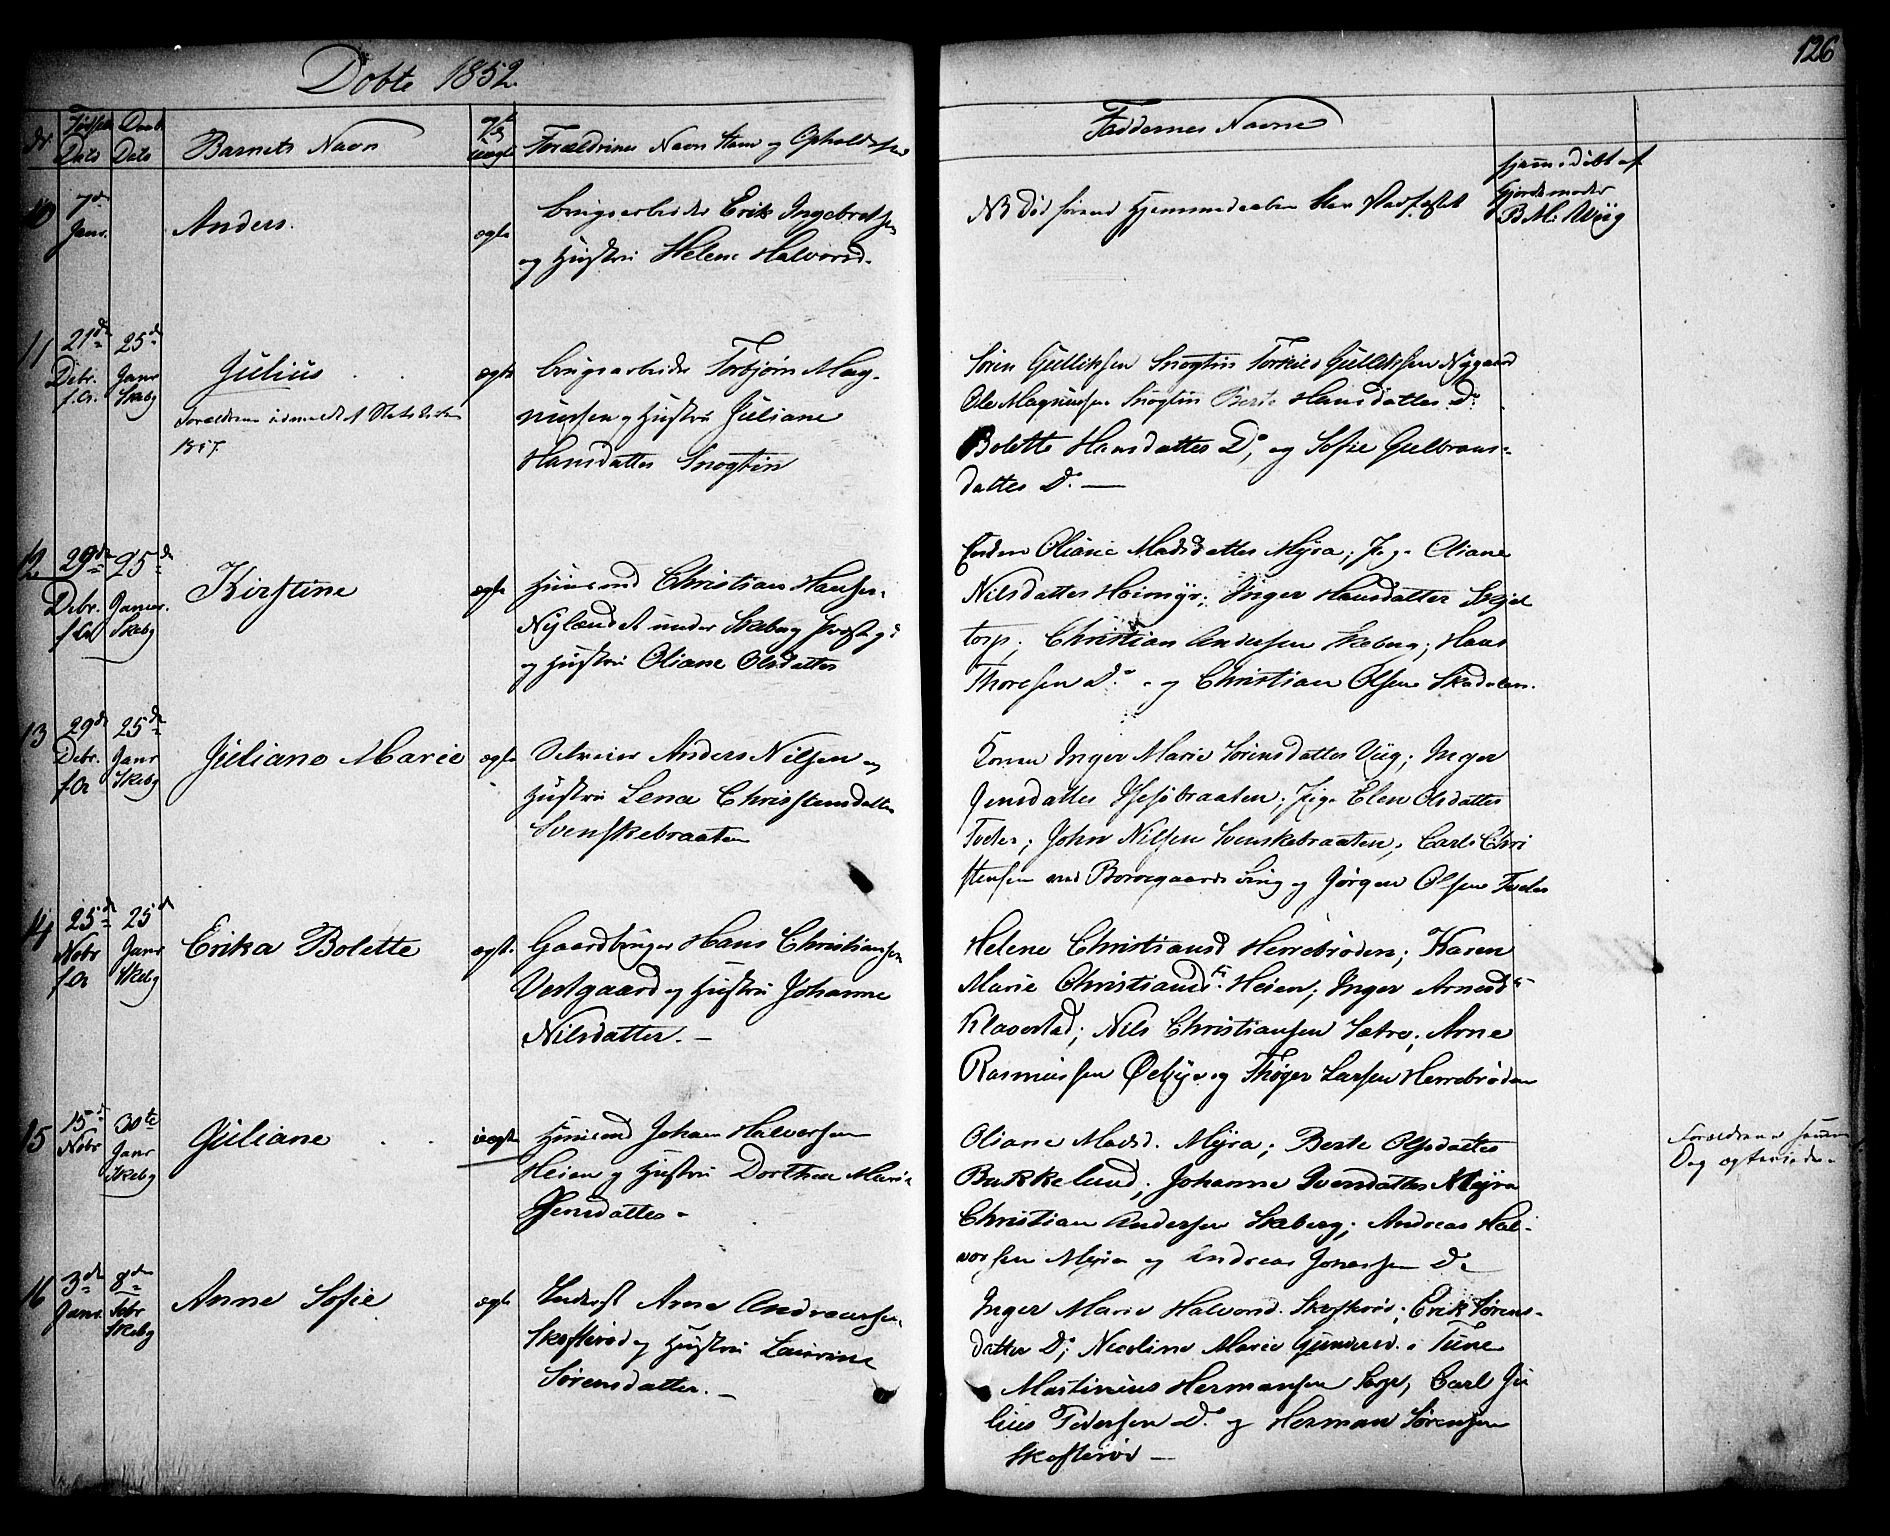 126
Döbte 1852.
Nr
Fødsels Dato
Daab Dato
Barnets Navn
Forældrenes Navn Stand og Opholdssted
Faddernes Navne
10
7de
Janr.
Anders.
ægte
brugsarbeider Erik Ingebretsen
og Hustru Helene Halvorsd.
NB Död forend Hjemmedaaben blev Stadfæstet
hjemmedöbt af
Gjordemoder
B. M. Wiig
11
21de
Debr.
f. A.
25de
Janr
Skebg
Julius
Forældrene udmeldt af Statskirken
1857.
ægte
brugsarbeider Torbjörn Mag-
nussen og Hustru Juliane
Hansdatter Snogtin
Sören Gulliksen Snogtin Gulliksen Nygaard
Ole Magnussen Snogtin Berte Hansdatter Do
Bolette Hansdatter Do, og Sofie Gulbrans-
datter Do. —
12
29de
Debr.
f. A
25de
Januar.
Skebg
Kirstine
ægte
Huusmand Christian Hansen
Nylændet under Skeberg Præstgd
og Hustru Oliane Olsdatter
Enken Oliane Madsdatter Myra; Pige Oliane
Nilsdatter Heimyr; Inger Hansdatter Skjel
torp; Christian Andersen Skeberg; Hans
Thoresen Do. og Christian Olsen Skadalen.
13
29de
Debr.
f. A
25de
Janr
Skebg
Juliane Marie
ægte
Selveier Anders Nilsen og
Hustru Lena Christensdatter
Svenskebraaten
Konen Inger Marie Sörensdatter Viig; Inger
Jensdatter Pige Elen Olsdatter
Tveter; John Nilsen Svenskebraaten; Carl Chri
stensen ved Borregaards og Jörgen Olsen Tveter
14
25de
Nobr
f. A
25de
Janr
Skebg
Erika Bolette
ægte.
Gaardbruger Hans Christiansen
Vestgaard og Hustru Johanne
Nilsdatter. —
Helene Christiansd Herrebröden; Karen
Marie Christiansdtr. Heien; Inger Arnesdtr
Klavestad; Nils Christiansen Sætre; Arne
Rasmussen Öeby og Thöger Larsen Herrebröden
15
15de
Nobr
30te
Janr
Skebg
Juliane
uægte
Huusmand Johan Halvorsen
Heien og Hustru Dorthea Marie
Jensdatter.
Oliane Madsd. Myra; Berte Olsdatter
Burkelund; Johanne Svendsdatter Myra
Christian Andersen Skeberg; Andreas Hal-
vorsen Myra og Andreas Jonassen Do
Forældrene samme
Dag ægteviede.
16
3de
Janr.
8de
Febr
Skebg
Anne Sofie
ægte
Inderst Arne Andreassen
Skofteröd og Hustru Laurine
Sörensdatter. —
Inger Marie Halvorsd. Skofteröd; Erik Sörens-
datter Do; Nicoline Marie Gundersd. i Tune
Martinius Hermansen Carl Ju
lius Pedersen Do. og Herman Sörensen
Skofteröd —